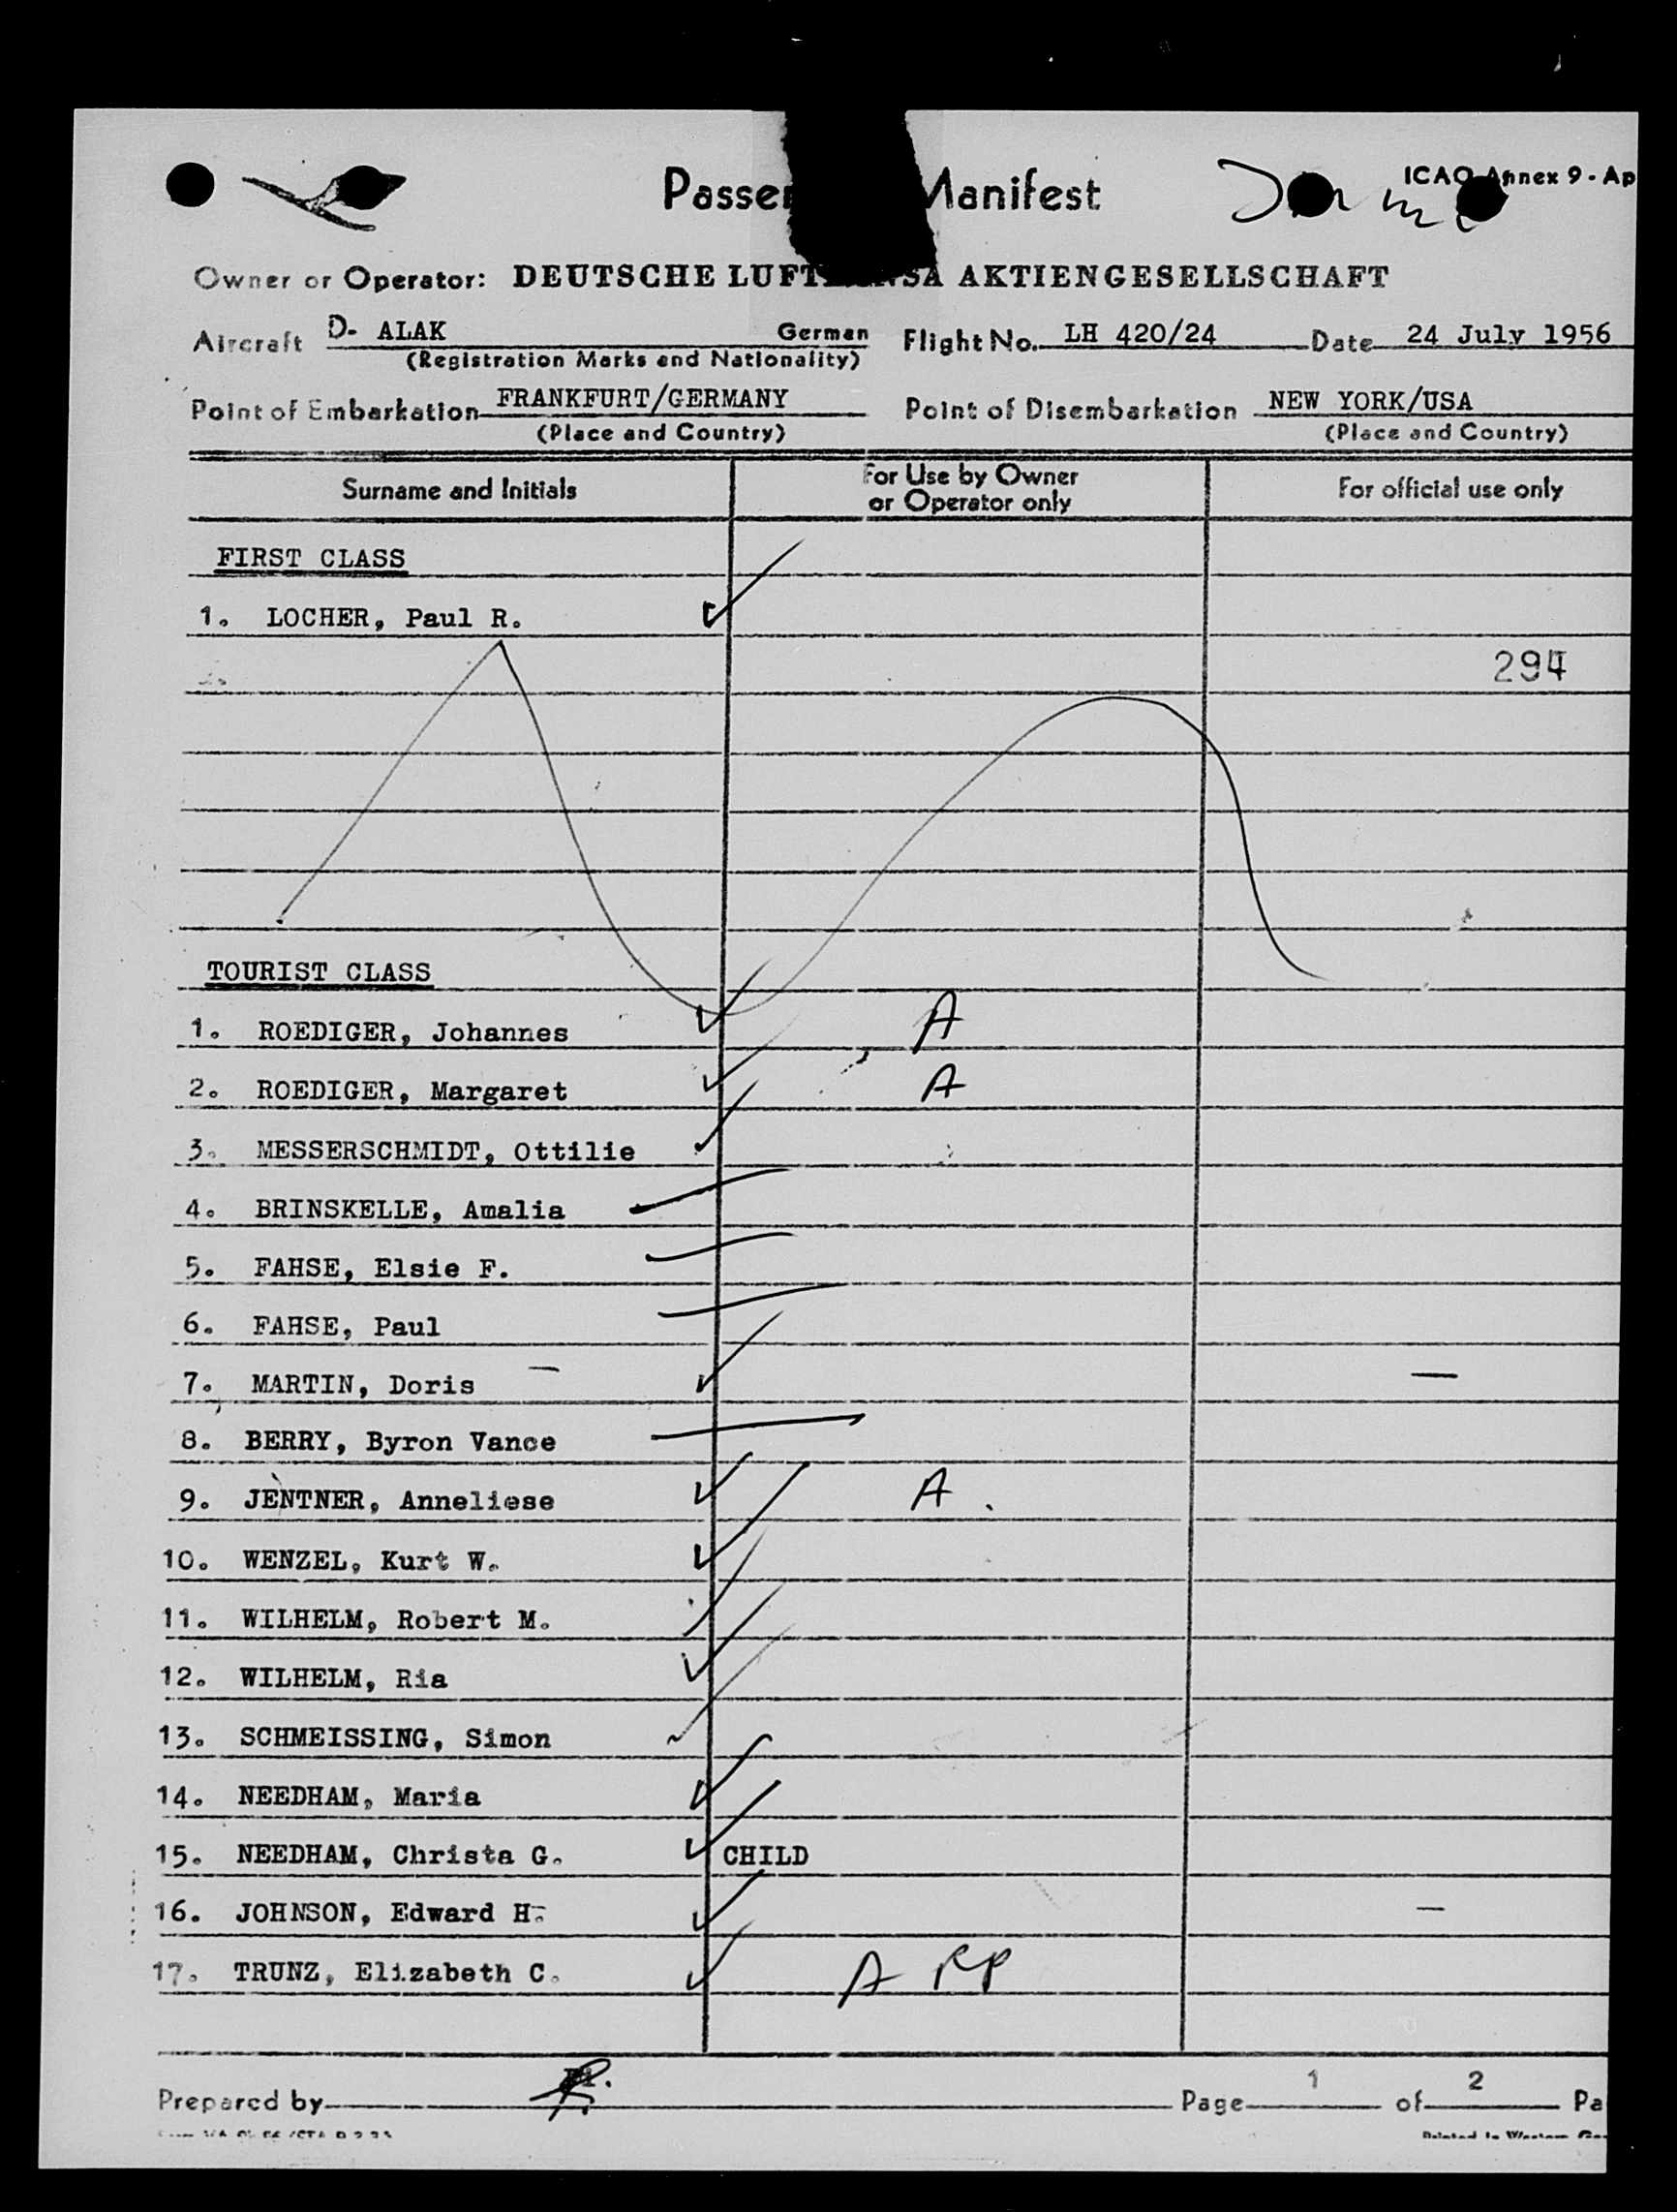 Passe Manifest
ICAO Annex 9 - Ap
Owner or Operator: DEUTSCHE LUFT SA AKTIENGESELLSCHAFT
Aircraft D- ALAK German Flight No. LH 420/24 Date 24 July 1956
(Registration Marks and Nationality)
Point of Embarkation FRANKFURT/GERMANY Point of Disembarkation NEW YORK/USA
(Place and Country) (Place and Country)
Surname and Initials For Use by Owner or Operator only For official use only
FIRST CLASS
1. LOCHER, Paul R.
294
TOURIST CLASS
1. ROEDIGER, Johannes A
2. ROEDIGER, Margaret A
3. MESSERSCHMIDT, Ottilie
4. BRINSKELLE, Amalia
5. FAHSE, Elsie F.
6. FAHSE, Paul
7. MARTIN, Doris —
8. BERRY, Byron Vance
9. JENTNER, Anneliese A.
10. WENZEL, Kurt W.
11. WILHELM, Robert M.
12. WILHELM, Ria
13. SCHMEISSING, Simon
14. NEEDHAM, Maria
15. NEEDHAM, Christa G. CHILD
16. JOHNSON, Edward H. —
17. TRUNZ, Elizabeth C. A RP
Prepared by Page 1 of 2 Pa